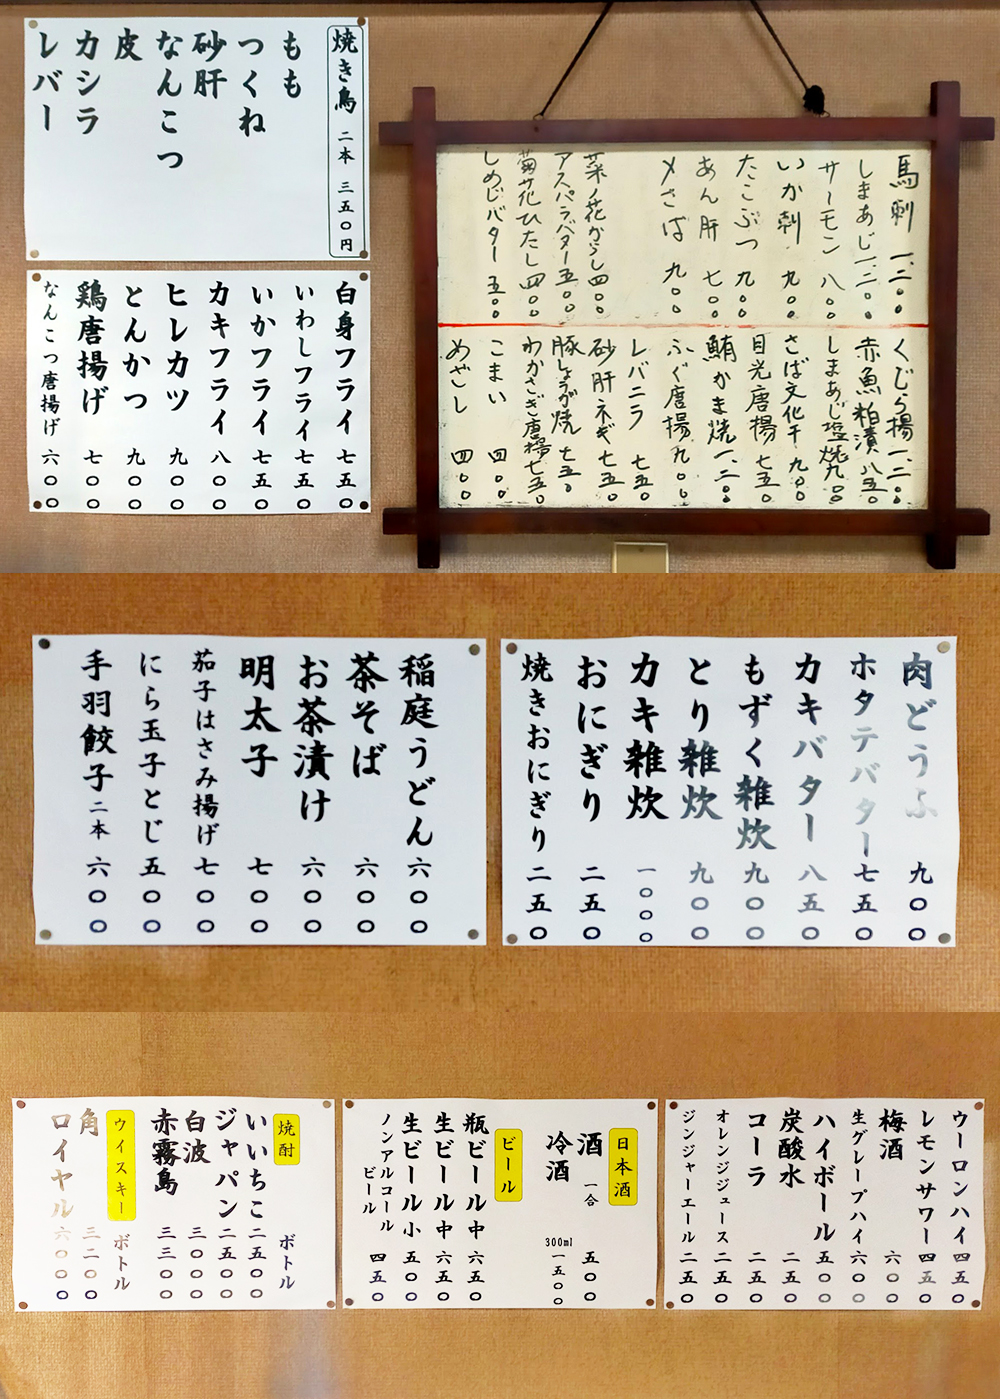 焼き鳥 二本 三五〇円
もも
つくね
砂肝
なんこつ
皮
カシラ
レバー
白身フライ 七五〇
いわしフライ 七五〇
いかフライ 七五〇
カキフライ 八〇〇
ヒレカツ 九〇〇
とんかつ 九〇〇
鶏唐揚げ 七〇〇
なんこつ唐揚げ 六〇〇
馬刺 一、二〇〇
しまあじ 一、二〇〇
サーモン 八〇〇
いか刺 九〇〇
たこぶつ 九〇〇
あん肝 七〇〇
〆さば 九〇〇
菜ノ花からし 四〇〇
アスパラバター 五〇〇
菊花ひたし 四〇〇
しめじバター 五〇〇
くじら揚 一、二〇〇
赤魚粕漬 八五〇
しまあじ塩焼 九〇〇
さば文化干 九〇〇
目光唐揚 七五〇
鮪かま焼 一、二〇〇
ふぐ唐揚 九〇〇
レバニラ 七五〇
砂肝ネギ 七五〇
豚しょうが焼 七五〇
わかさぎ唐揚 七五〇
こまい 四〇〇
めざし 四〇〇
稲庭うどん 六〇〇
茶そば 六〇〇
お茶漬け 六〇〇
明太子 七〇〇
茄子はさみ揚げ 七〇〇
にら玉子とじ 五〇〇
手羽餃子 二本 六〇〇
肉どうふ 九〇〇
ホタテバター 七五〇
カキバター 八五〇
もずく雑炊 九〇〇
とり雑炊 九〇〇
カキ雑炊 一〇〇〇
おにぎり 二五〇
焼きおにぎり 二五〇
焼酎 ボトル
いいちこ 二五〇〇
ジャパン 二五〇〇
白波 三〇〇〇
赤霧島 三三〇〇
ウイスキー ボトル
角 三二〇〇
ロイヤル 六〇〇〇
日本酒
酒 一合 五〇〇
冷酒 300ml 一五〇〇
ビール
瓶ビール中 六五〇
生ビール中 六五〇
生ビール小 五〇〇
ノンアルコールビール 四五〇
ウーロンハイ 四五〇
レモンサワー 四五〇
梅酒 六〇〇
生グレープハイ 六〇〇
ハイボール 五〇〇
炭酸水 二五〇
コーラ 二五〇
オレンジジュース 二五〇
ジンジャーエール 二五〇